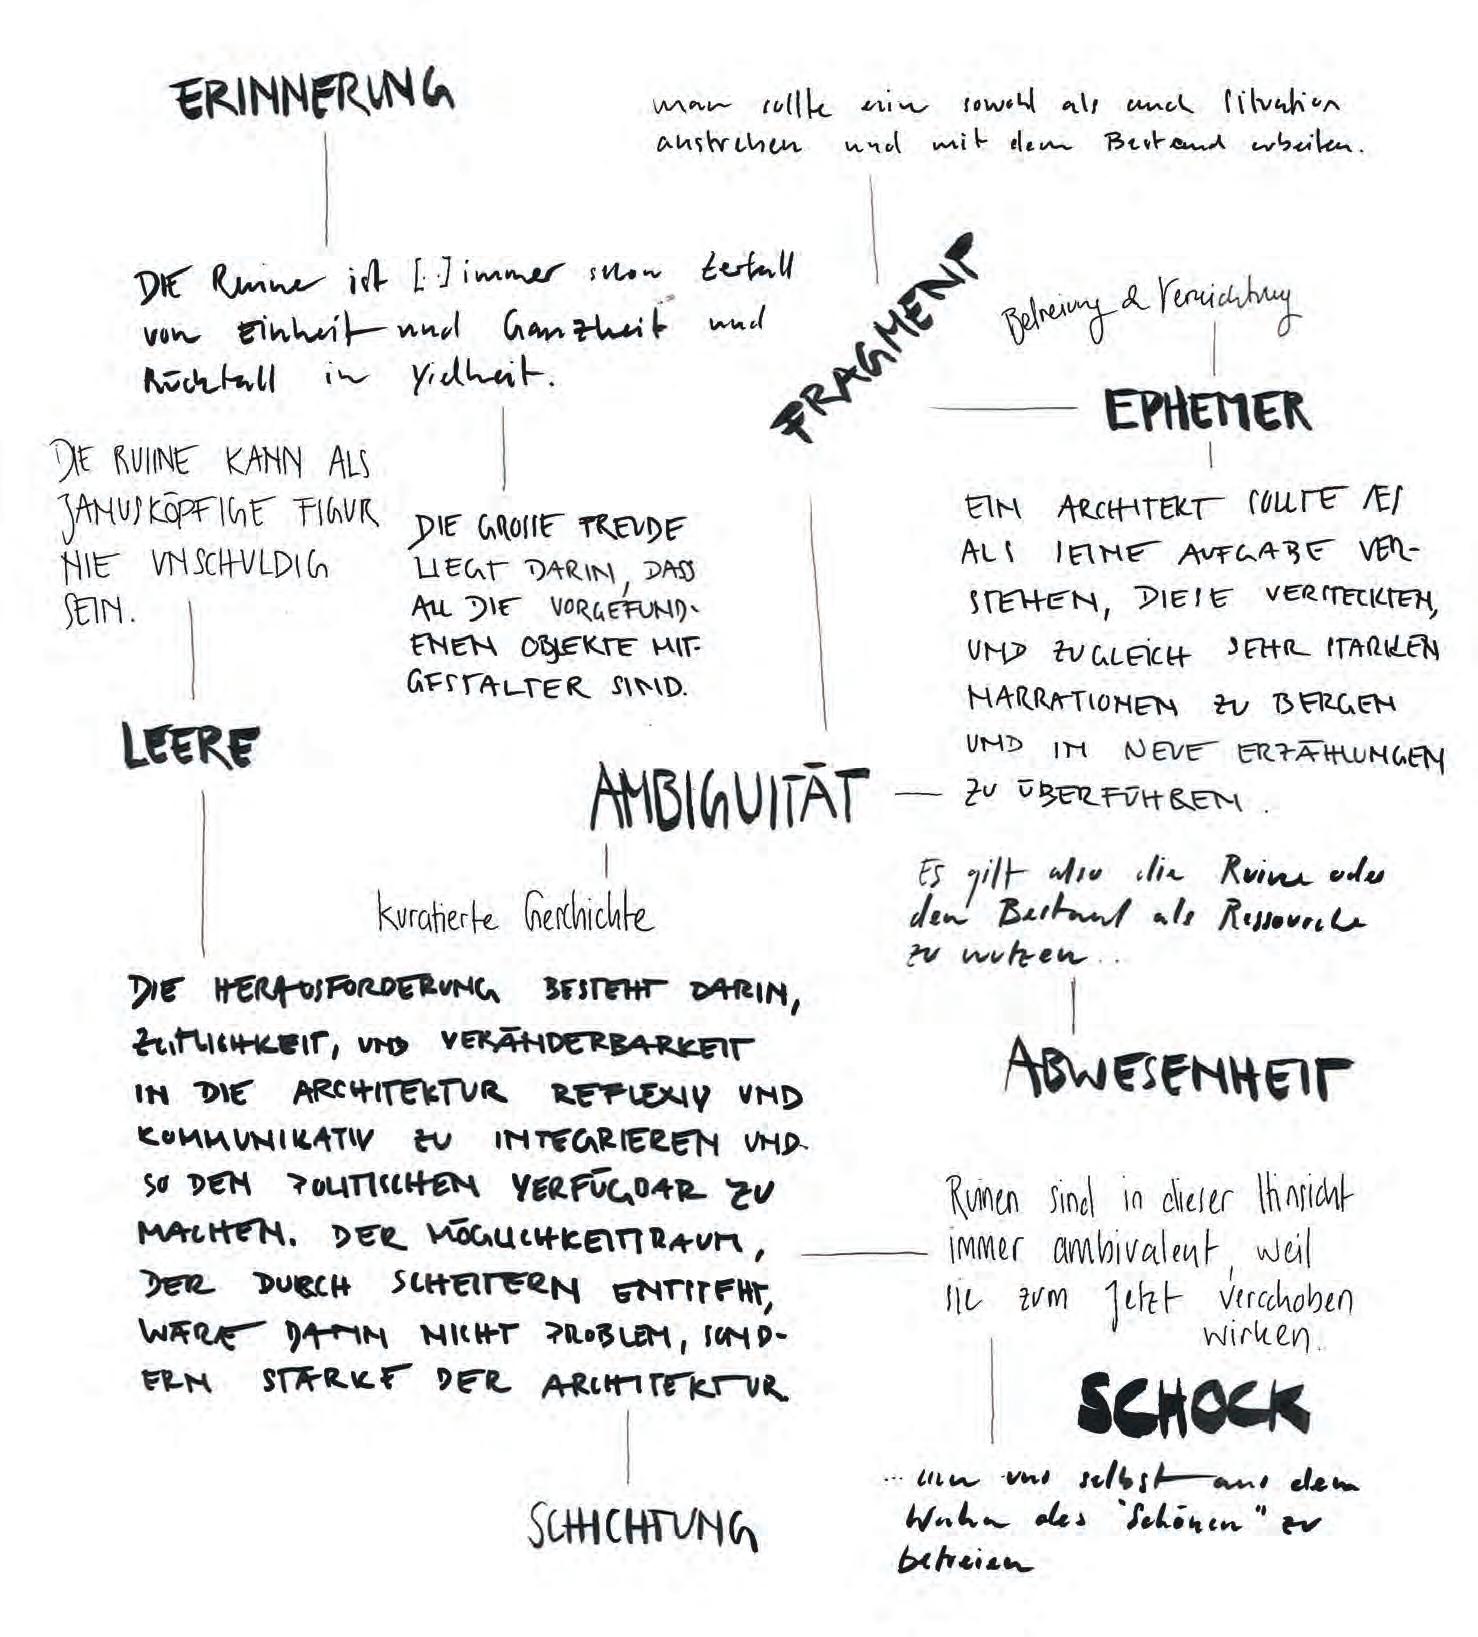 ERINNERUNG
man sollte ein sowohl als auch Situation
anstreben und mit dem Bestand arbeiten.
DIE Ruine ist [..] immer schon Zerfall
von Einheit und Ganzheit und
Rückfall in Vielheit.
FRAGMENT
Befreiung & Vernichtung
EPHEMER
DIE RUINE KANN ALS
JANUSKÖPFIGE FIGUR
NIE UNSCHULDIG
SEIN.
DIE GROSSE FREUDE
LIEGT DARIN, DASS
ALL DIE VORGEFUND-
ENEN OBJEKTE MIT-
GESTALTER SIND.
EIN ARCHITEKT SOLLTE ES
ALS SEINE AUFGABE VER-
STEHEN, DIESE VERSTECKTEN,
UND ZUGLEICH SEHR STARKEN
NARRATIONEN ZU BERGEN
UND IN NEUE ERZÄHLUNGEN
ZU ÜBERFÜHREN.
LEERE
AMBIGUITÄT
kuratierte Geschichte
Es gilt also die Ruine oder
den Bestand als Ressource
zu nutzen...
ABWESENHEIT
DIE HERAUSFORDERUNG BESTEHT DARIN,
ZEITLICHKEIT, UND VERÄNDERBARKEIT
IN DIE ARCHITEKTUR REFLEXIV UND
KOMMUNIKATIV ZU INTEGRIEREN UND
SO DEN POLITISCHEN VERFÜGBAR ZU
MACHEN. DER MÖGLICHKEITSRAUM,
DER DURCH SCHEITERN ENTSTEHT,
WÄRE DANN NICHT PROBLEM, SOND-
ERN STÄRKE DER ARCHITEKTUR.
Ruinen sind in dieser Hinsicht
immer ambivalent, weil
sie zum Jetzt verschoben
wirken.
SCHOCK
... um uns selbst aus dem
Wahn des "Schönen" zu
befreien
SCHICHTUNG